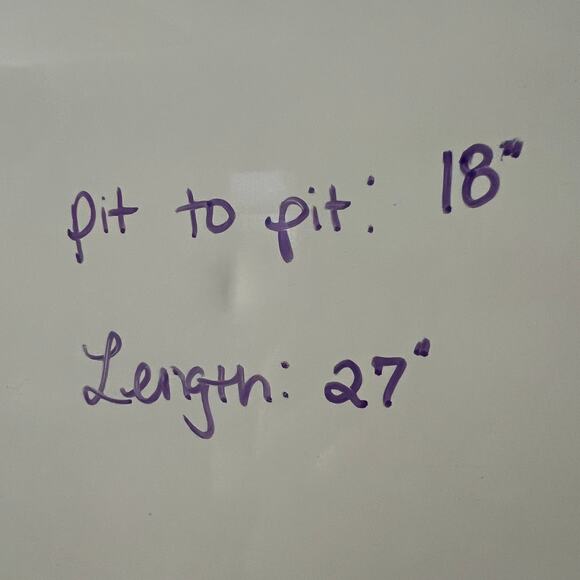 pit to pit: 18"
Length: 27"